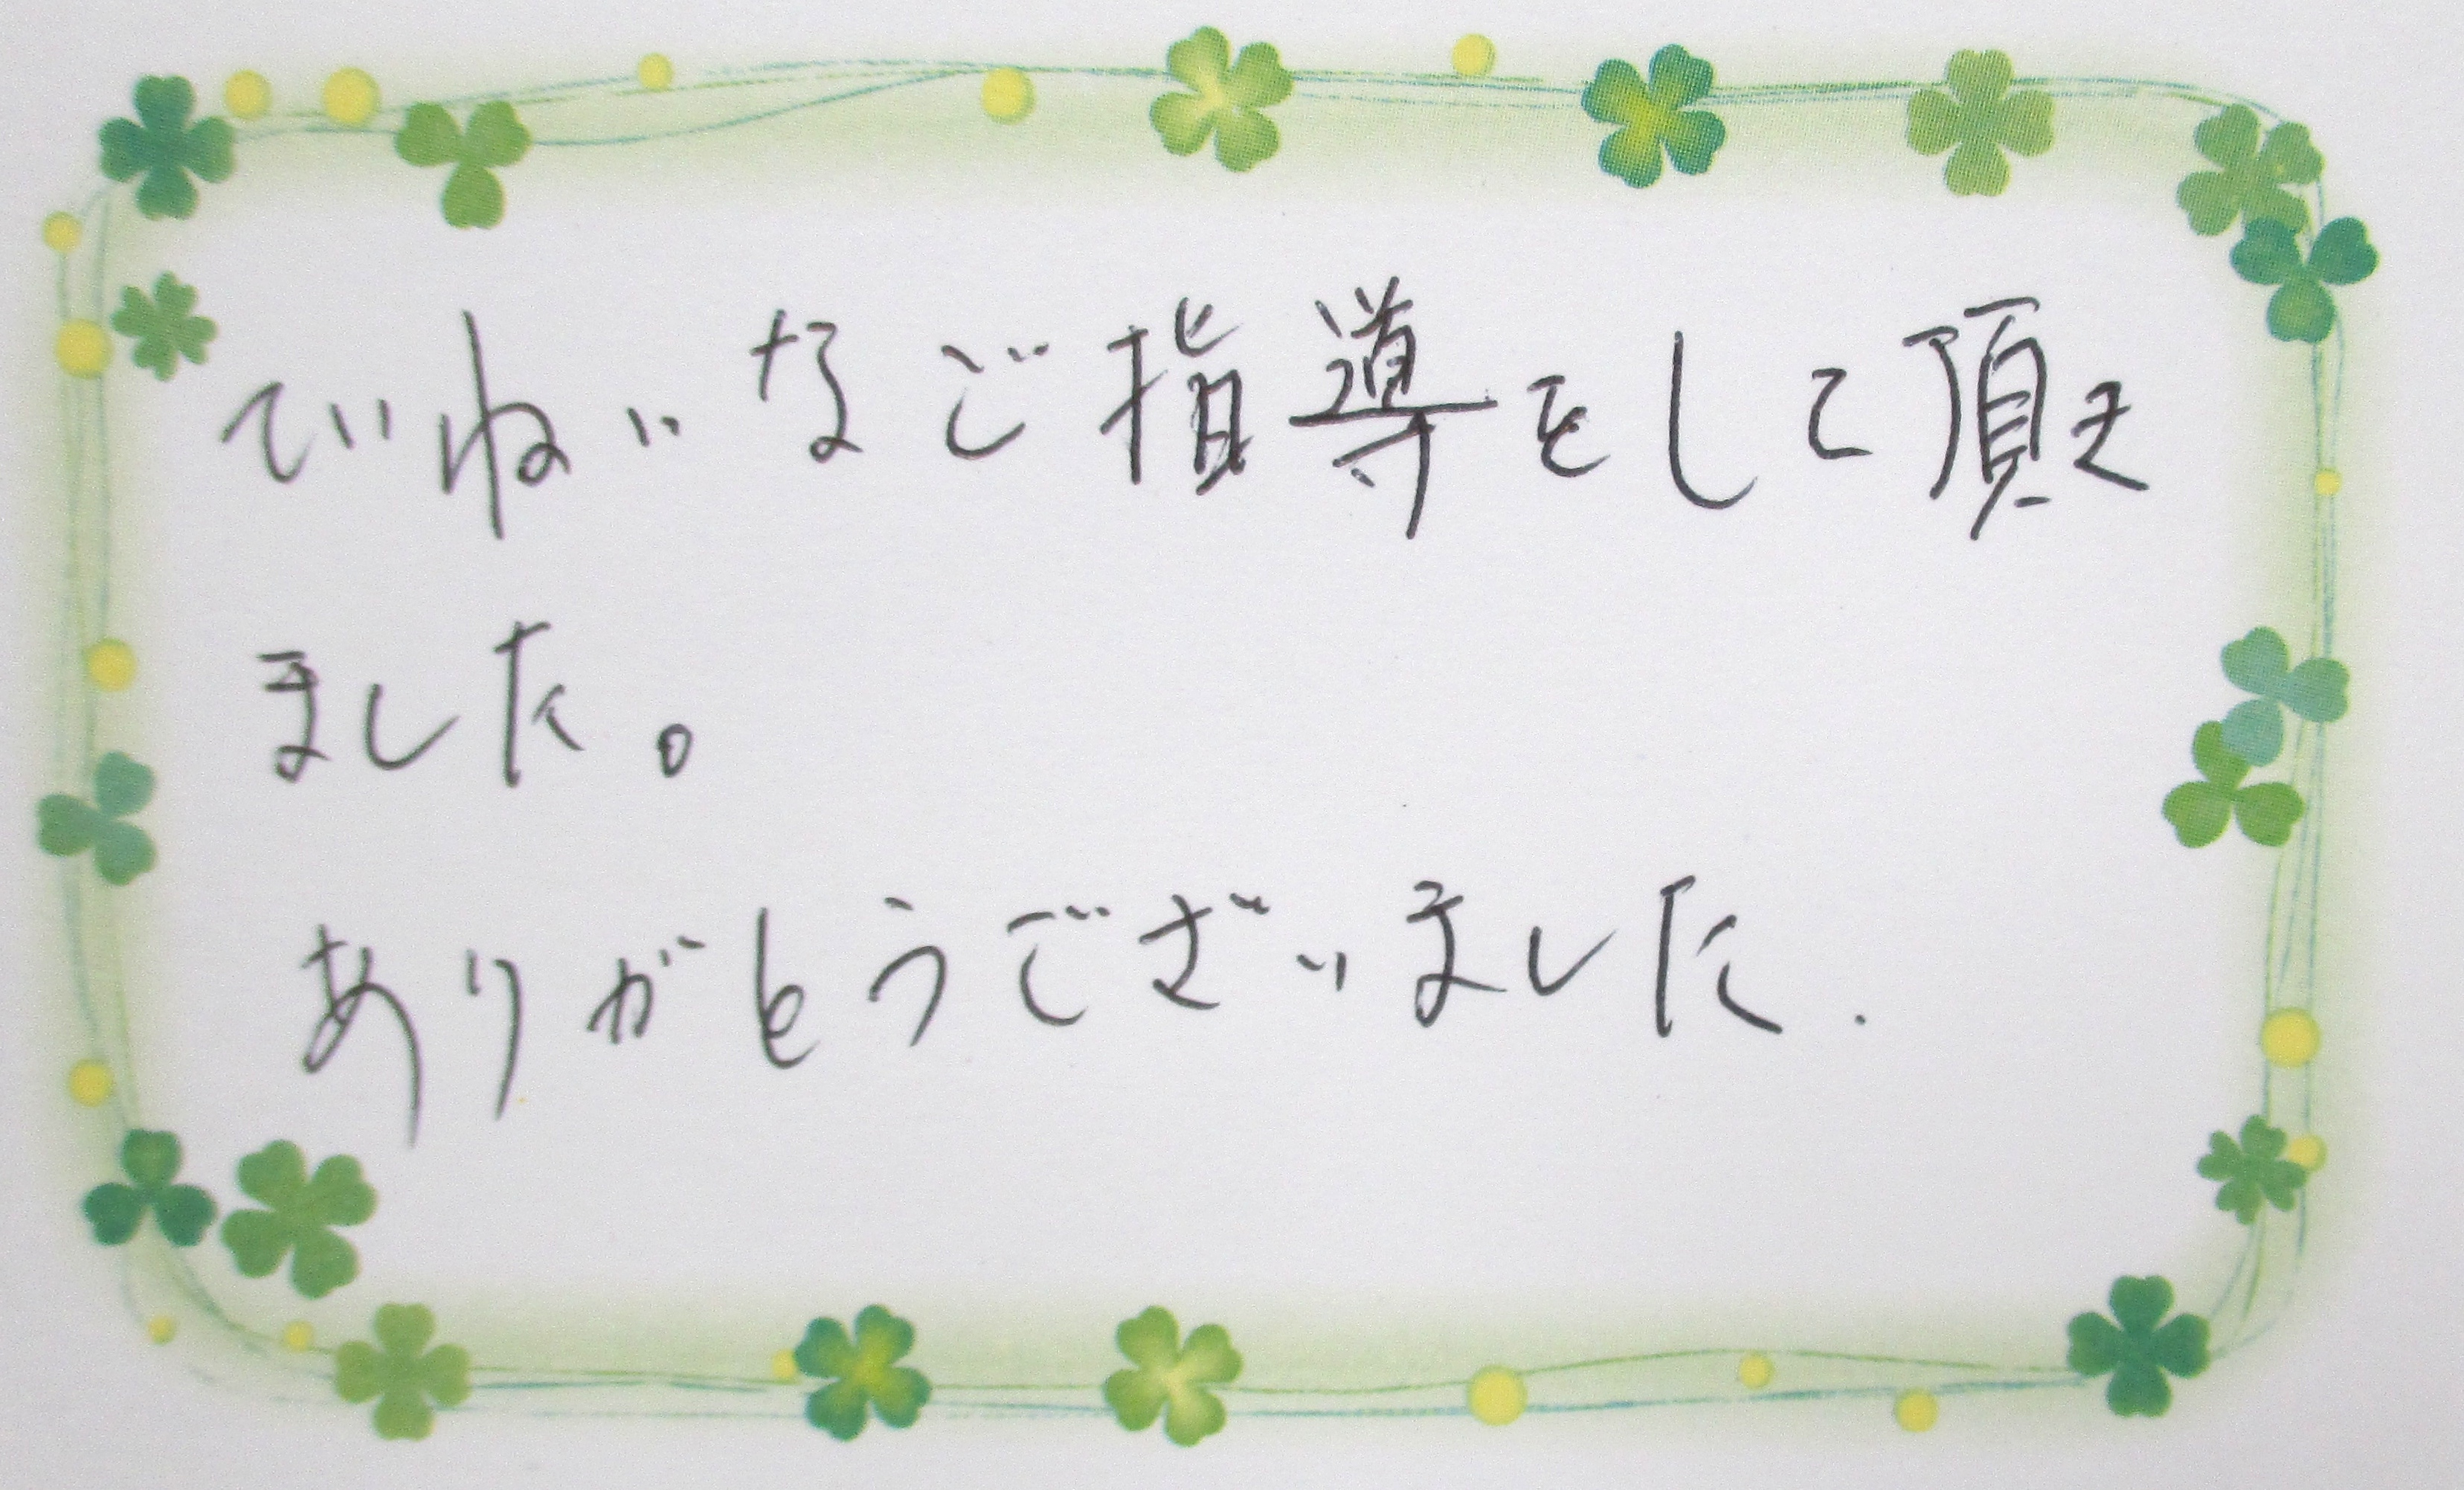 ていねいなご指導をして頂き
ました。
ありがとうございました.